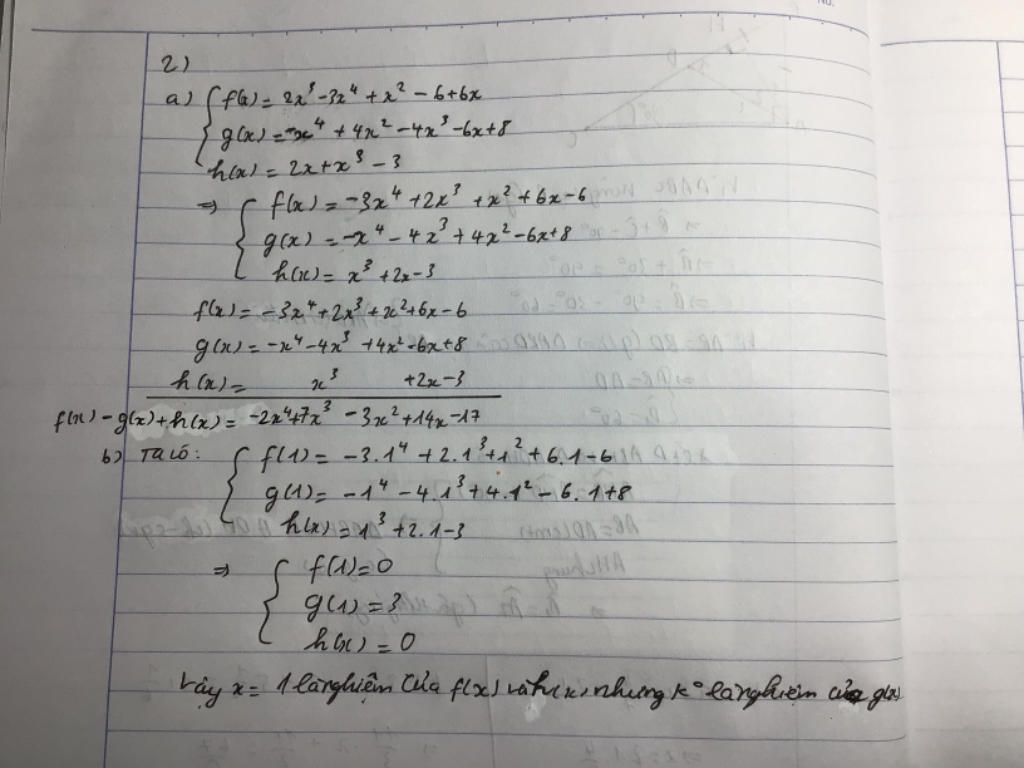 2)
a) { f(x) = 2x³ - 3x⁴ + x² - 6 + 6x
g(x) = -x⁴ + 4x² - 4x³ - 6x + 8
h(x) = 2x + x³ - 3
⇒ { f(x) = -3x⁴ + 2x³ + x² + 6x - 6
g(x) = -x⁴ - 4x³ + 4x² - 6x + 8
h(x) = x³ + 2x - 3
f(x) = -3x⁴ + 2x³ + x² + 6x - 6
g(x) = -x⁴ - 4x³ + 4x² - 6x + 8
h(x) = x³ + 2x - 3
f(x) - g(x) + h(x) = -2x⁴ + 7x³ - 3x² + 14x - 17
b) Ta có: { f(1) = -3.1⁴ + 2.1³ + 1² + 6.1 - 6
g(1) = -1⁴ - 4.1³ + 4.1² - 6.1 + 8
h(x) = 1³ + 2.1 - 3
⇒ { f(1) = 0
g(1) = 3
h(x) = 0
Vậy x = 1 là nghiệm của f(x) và h(x) nhưng k° là nghiệm của g(x)